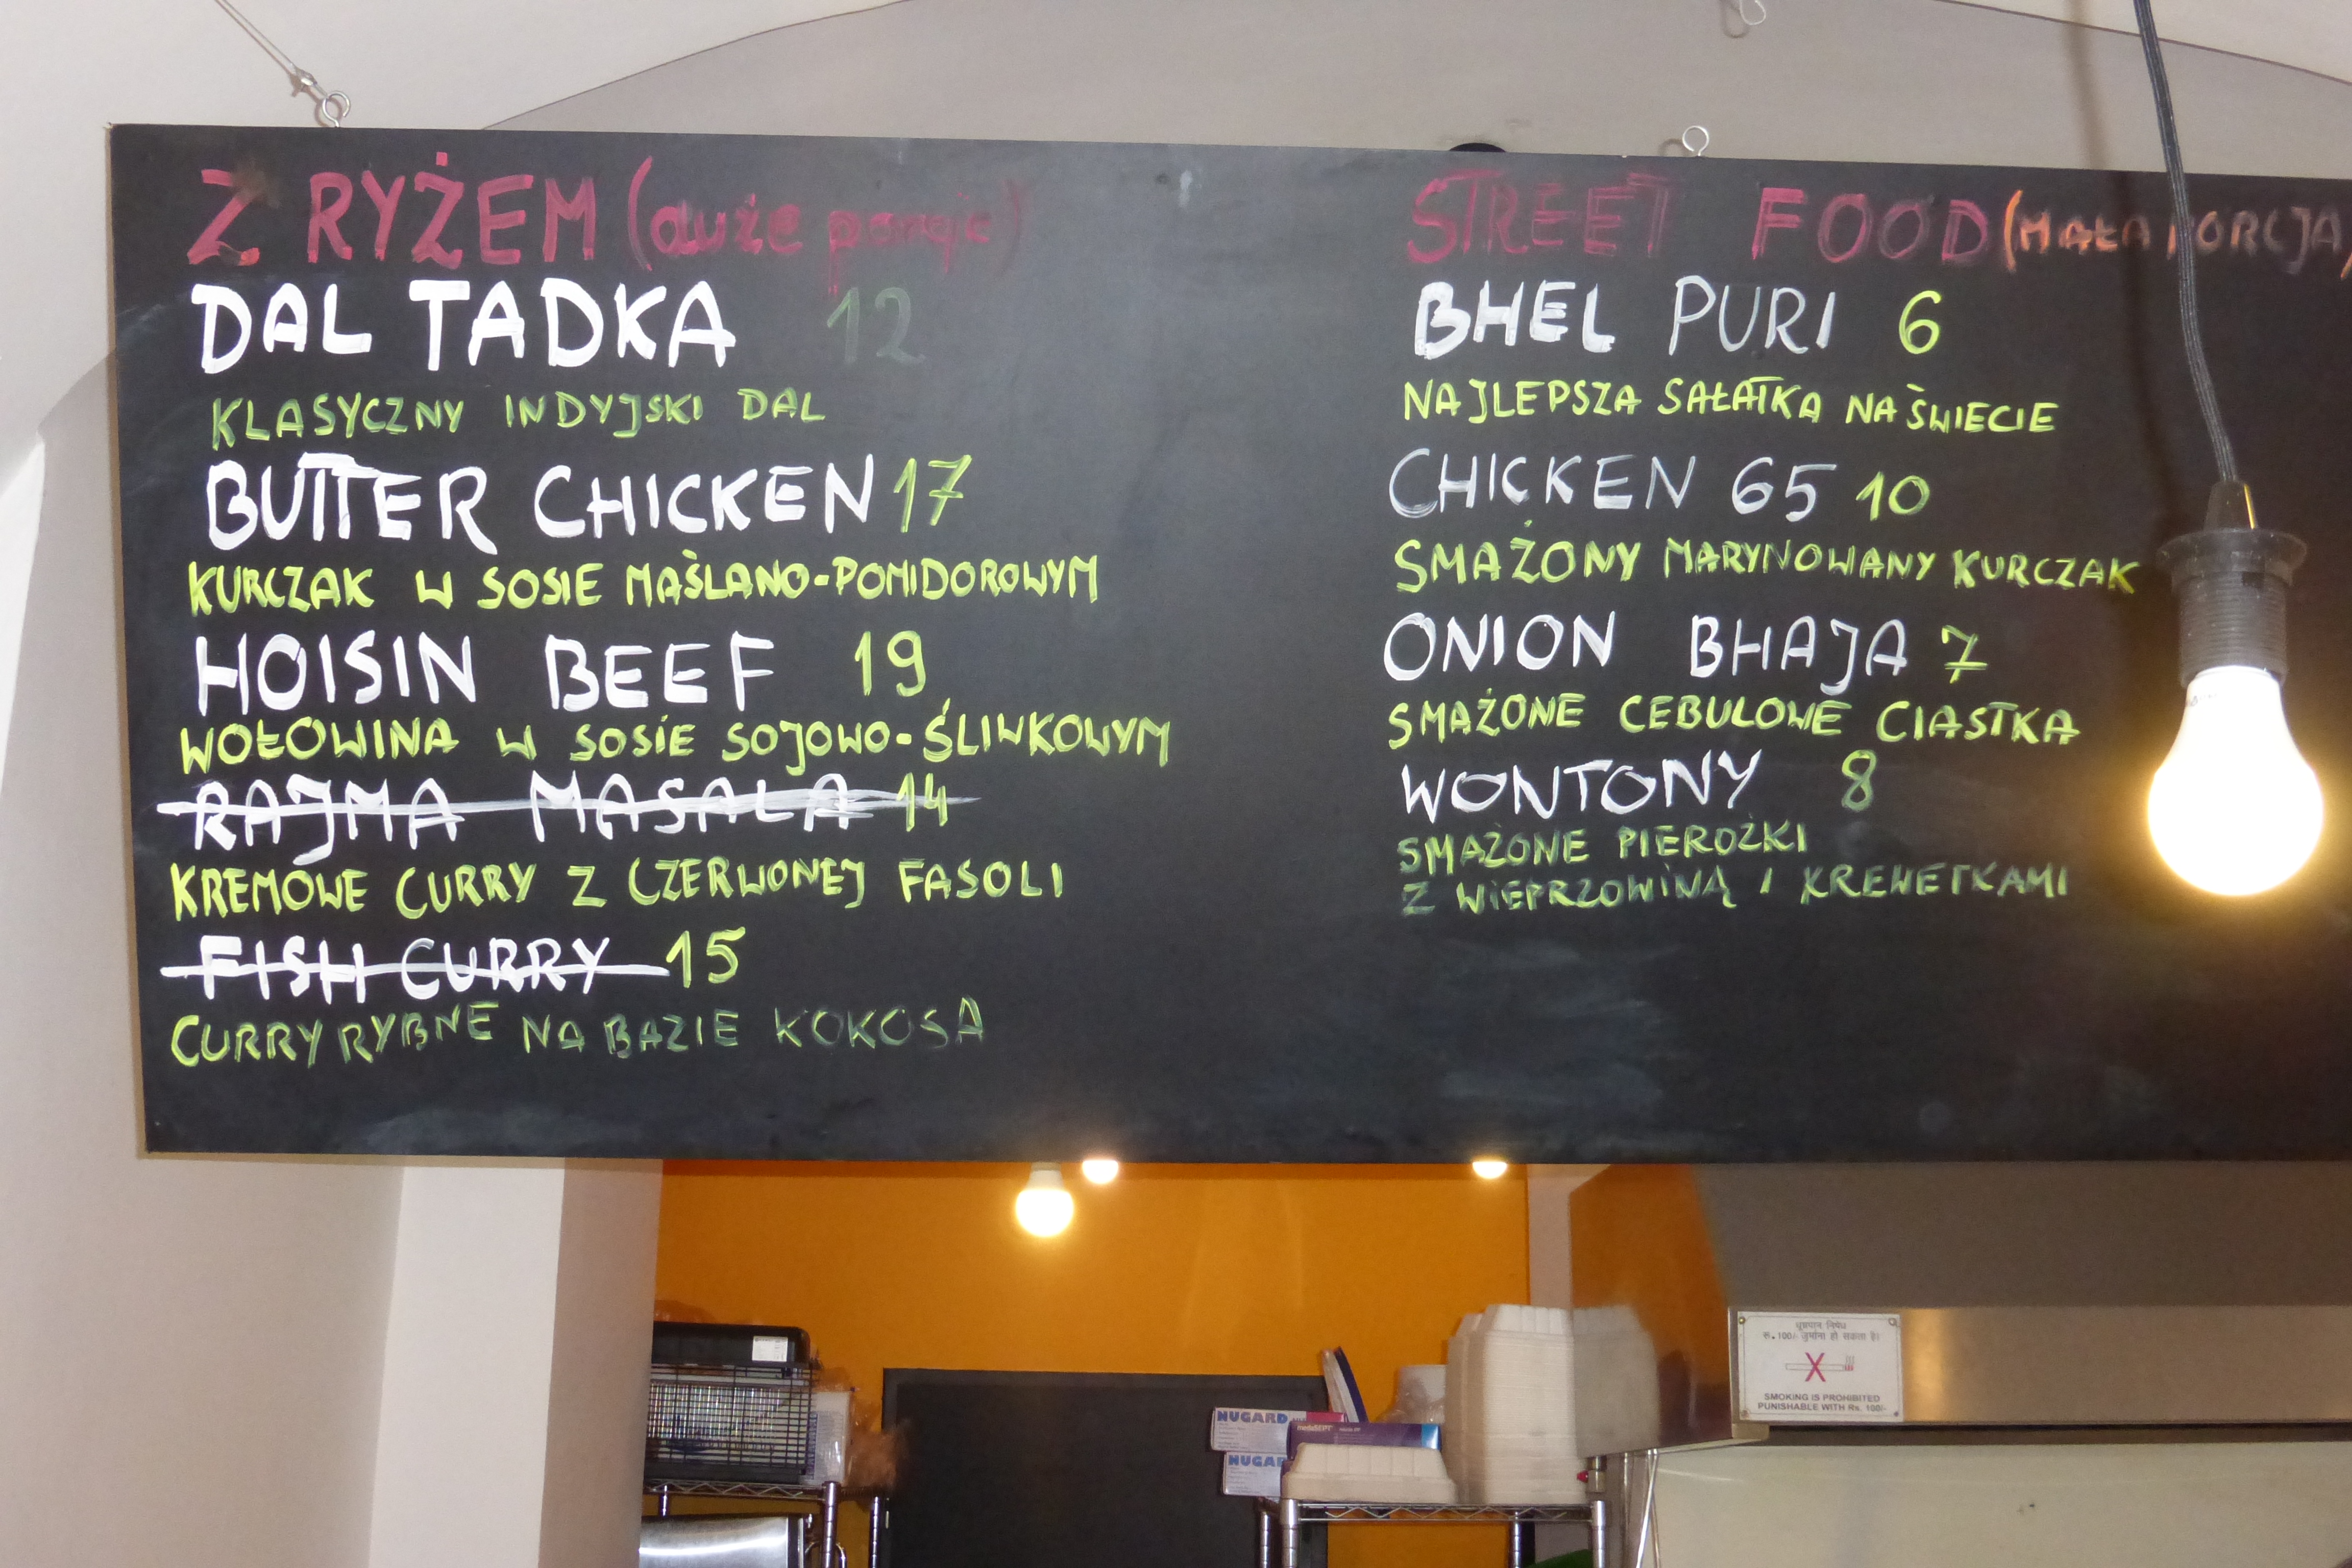 Z RYŻEM (duże porcje)
DAL TADKA 12
KLASYCZNY INDYJSKI DAL
BUTTER CHICKEN 17
KURCZAK W SOSIE MAŚLANO-POMIDOROWYM
HOISIN BEEF 19
WOŁOWINA W SOSIE SOJOWO-ŚLIWKOWYM
RAJMA MASALA 14
KREMOWE CURRY Z CZERWONEJ FASOLI
FISH CURRY 15
CURRY RYBNE NA BAZIE KOKOSA
STREET FOOD (MAŁA PORCJA)
BHEL PURI 6
NAJLEPSZA SAŁATKA NA ŚWIECIE
CHICKEN 65 10
SMAŻONY MARYNOWANY KURCZAK
ONION BHAJA 7
SMAŻONE CEBULOWE CIASTKA
WONTONY 8
SMAŻONE PIEROŻKI
Z WIEPRZOWINĄ I KREWETKAMI
धूम्रपान निषेध
रू.100/- जुर्माना हो सकता है।
SMOKING IS PROHIBITED
PUNISHABLE WITH Rs. 100/-
NUGARD
mediSEPT
NUGAR